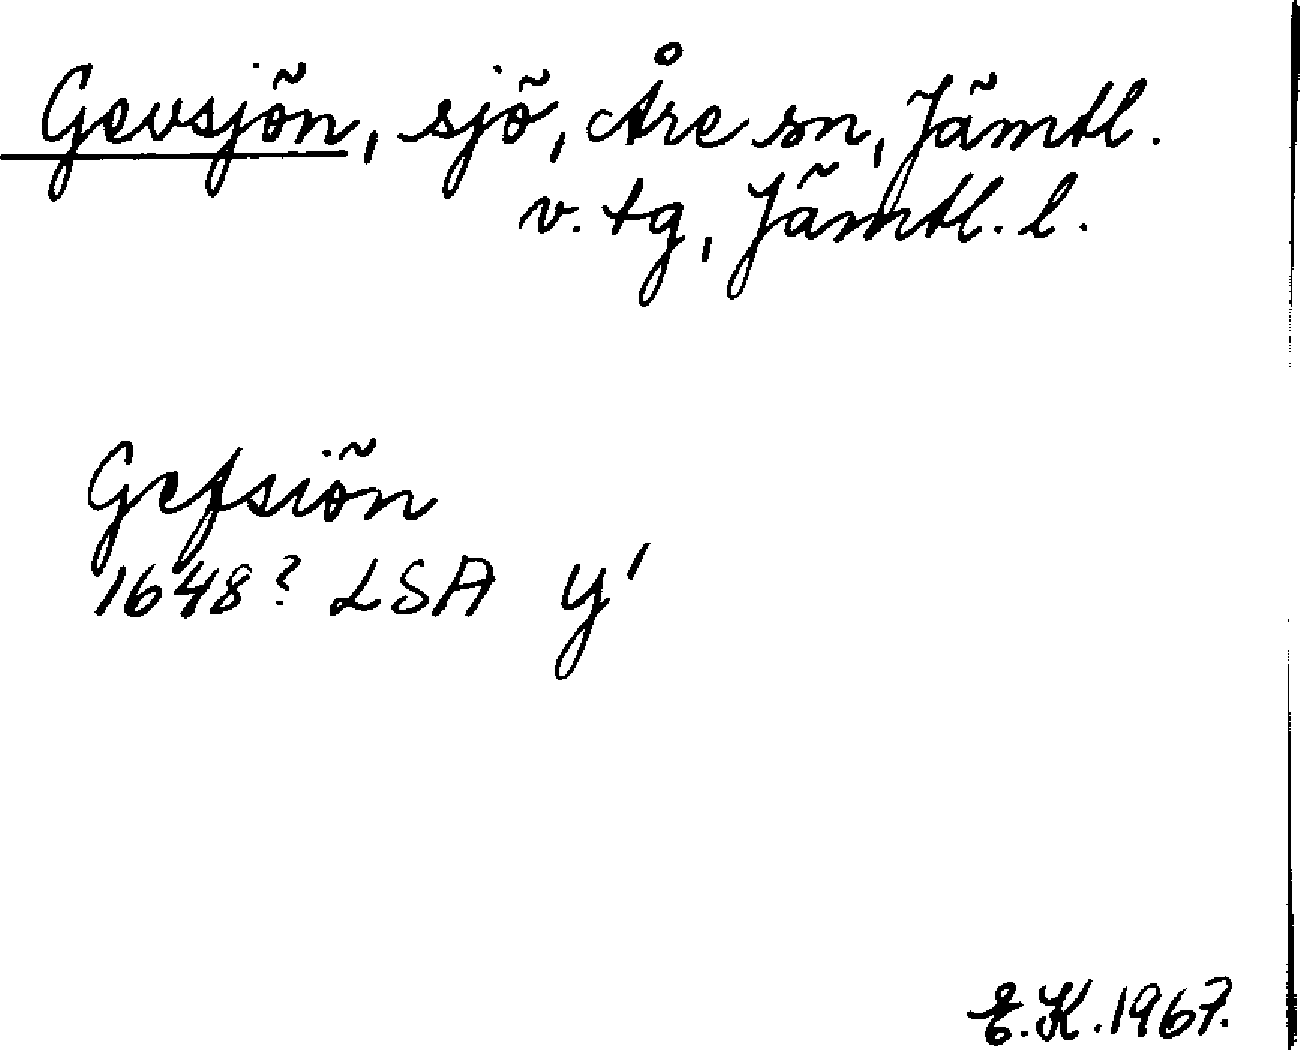 Gevsjön, sjö, Åre sn, Jämtl.
v. tg, Jämtl. l.
Gefsiön
1648? LSA y'
E.K. 1967.